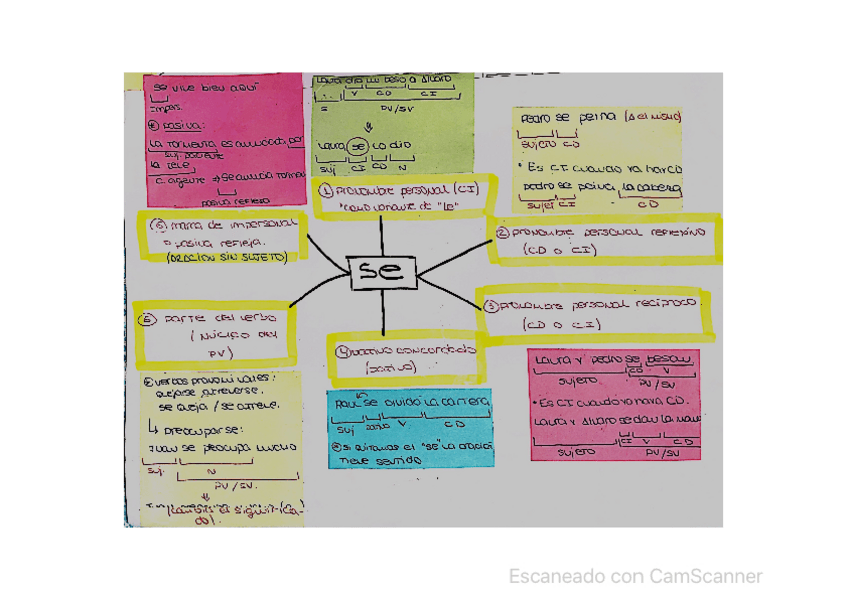 Se vive bien aquí
impers.
⊛ pasiva:
La tormenta es anunciada por
suj. paciente
la tele
c. agente → se anuncia
pasiva refleja
a Álvaro
V CD CI
S PV/SV
Laura se lo dio
suj CI CD N
Pedro se peina (a él mismo)
sujeto CD
* Es CI cuando ya hay CD
Pedro se peina la cabeza
sujet CI CD
① pronombre personal (CI)
*como variante de "le"
② pronombre personal reflexivo
(CD o CI)
③ pronombre personal recíproco
(CD o CI)
④ dativo concordado
(dativo)
⑤ parte del verbo
(núcleo del
PV)
⑥ marca de impersonal
o pasiva refleja.
(ORACIÓN SIN SUJETO)
se
verbos pronominales:
quejarse, atreverse.
se queja / se atreve.
↳ preocuparse:
Juan se preocupa mucho
suj. N
PV/SV.
se olvidó la cartera
suj dativo V CD
⊛ si quitamos el "se" la oración
tiene sentido
Laura y Pedro se besan
CD V
sujeto PV/SV
*Es CI cuando ya hay CD.
Laura y Álvaro se dan la mano
CI V CD
sujeto PV/SV
Escaneado con CamScanner